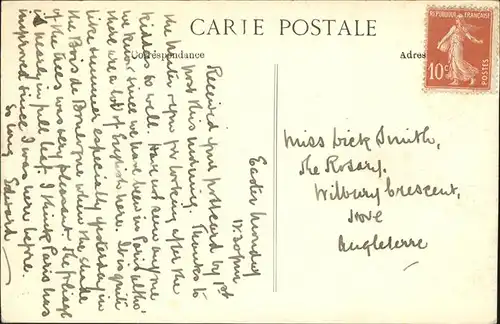 CARTE POSTALE
Correspondance
Adres
REPUBLIQUE FRANÇAISE
10c
POSTES
Easter Monday
12.30pm
Received your postcard by 1st
post this morning. Thanks to
the Mater & you for looking after the
kiddies so well. Have not seen anyone
we know since we have been in Paris altho'
there are a lot of English here. It is quite
like summer especially yesterday in
the Bois de Boulogne when the shade
of the trees was very pleasant. The foliage
is nearly in full leaf. I think Paris has
improved since I was here before.
So long Edward
Miss Dick Smith,
The Rosary,
Wilbury Crescent,
Hove
Angleterre